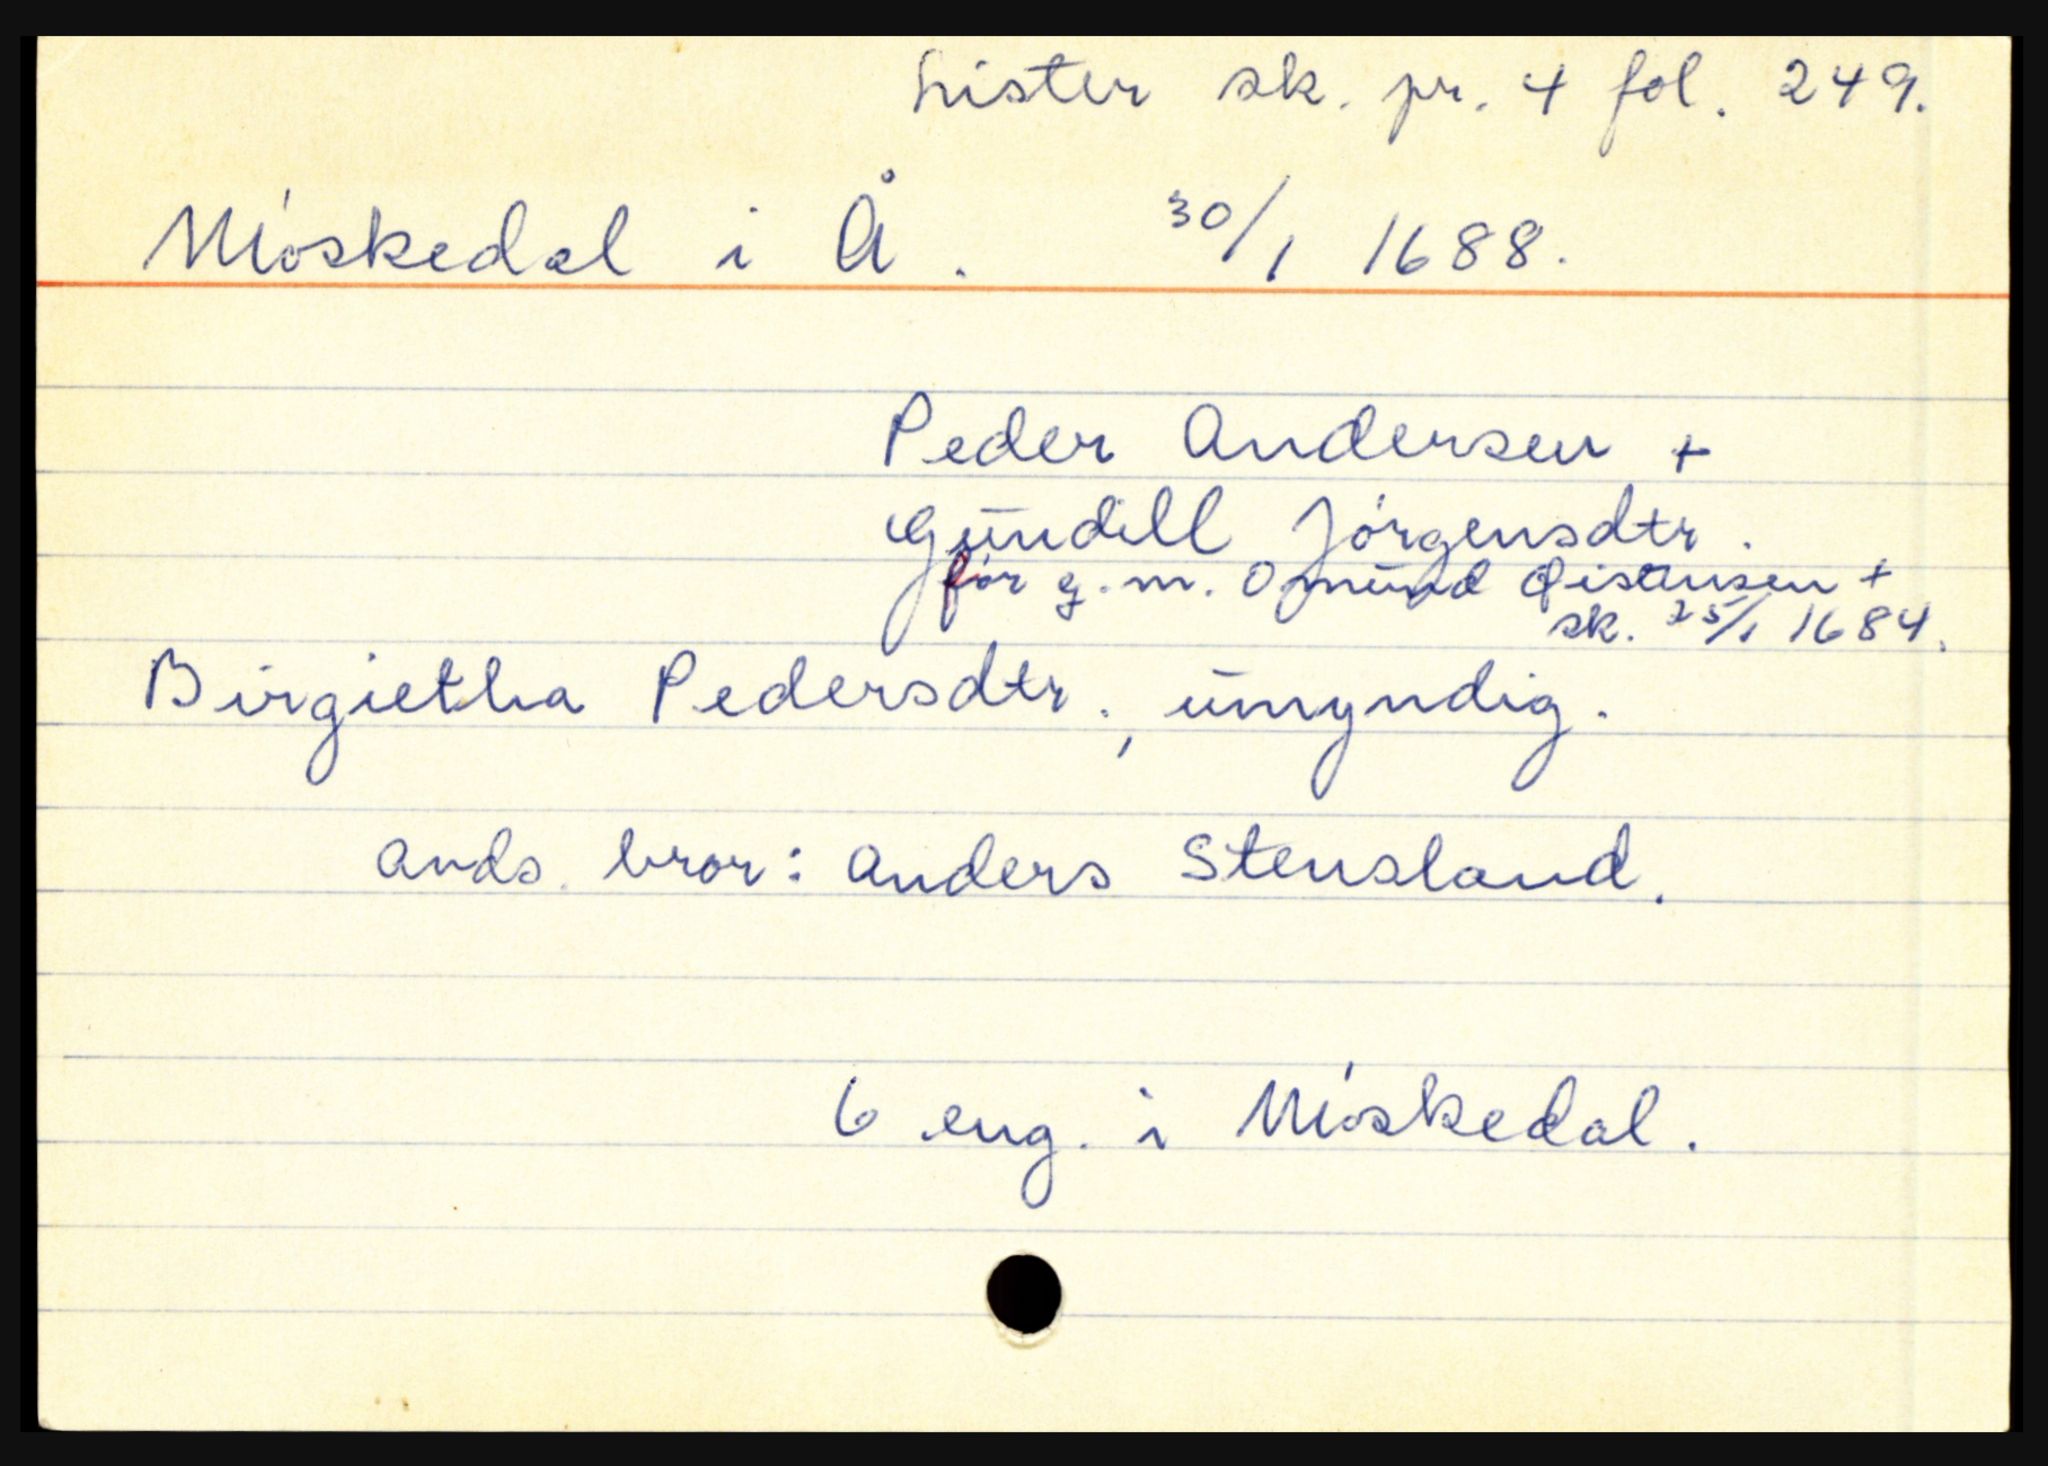 Lister sk. pr. 4 fol. 249.
Móskedal i Å. 30/1 1688.
Peder Andersen +
Gūndell Jórgensdtr.
fór g. m. Omūnd +
sk. 25/1 1684.
Birgietha Pedersdtr., ūmyndig.
avds. bror: Anders Stensland.
6 eng. i Móskedal.